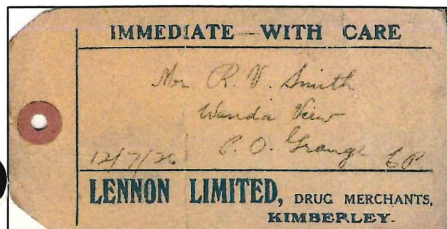 IMMEDIATE - WITH CARE
Mr R. V. Smith
Wanda View
12/7/26 P. O. Grange CP
LENNON LIMITED, DRUG MERCHANTS,
KIMBERLEY.